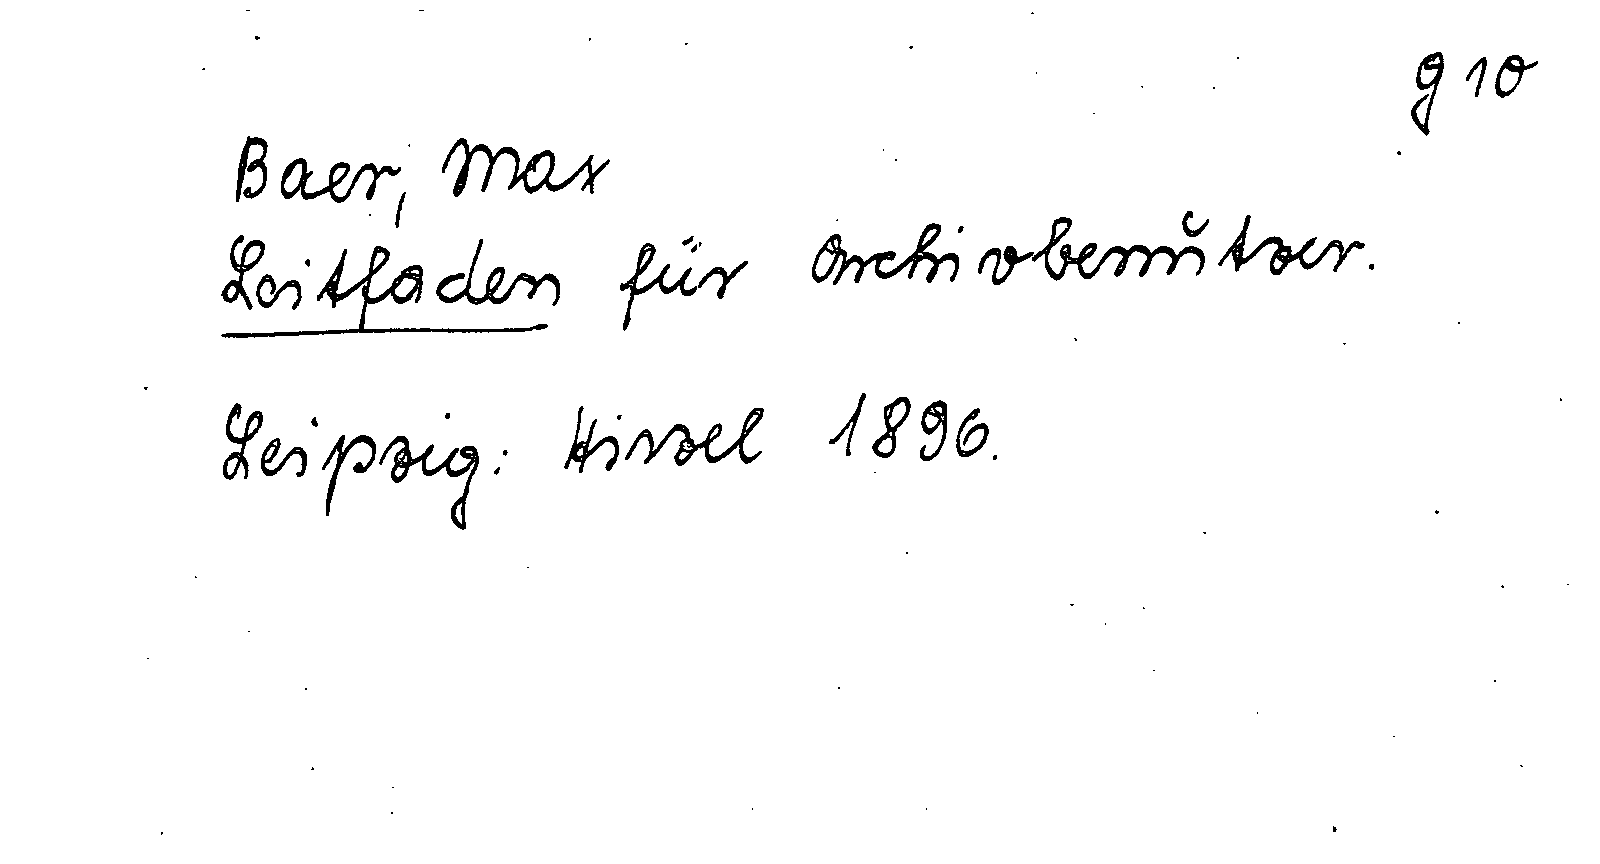 g 10
Baer, Max
Leitfaden für Archivbenutzer.
Leipzig: Hirzel 1896.